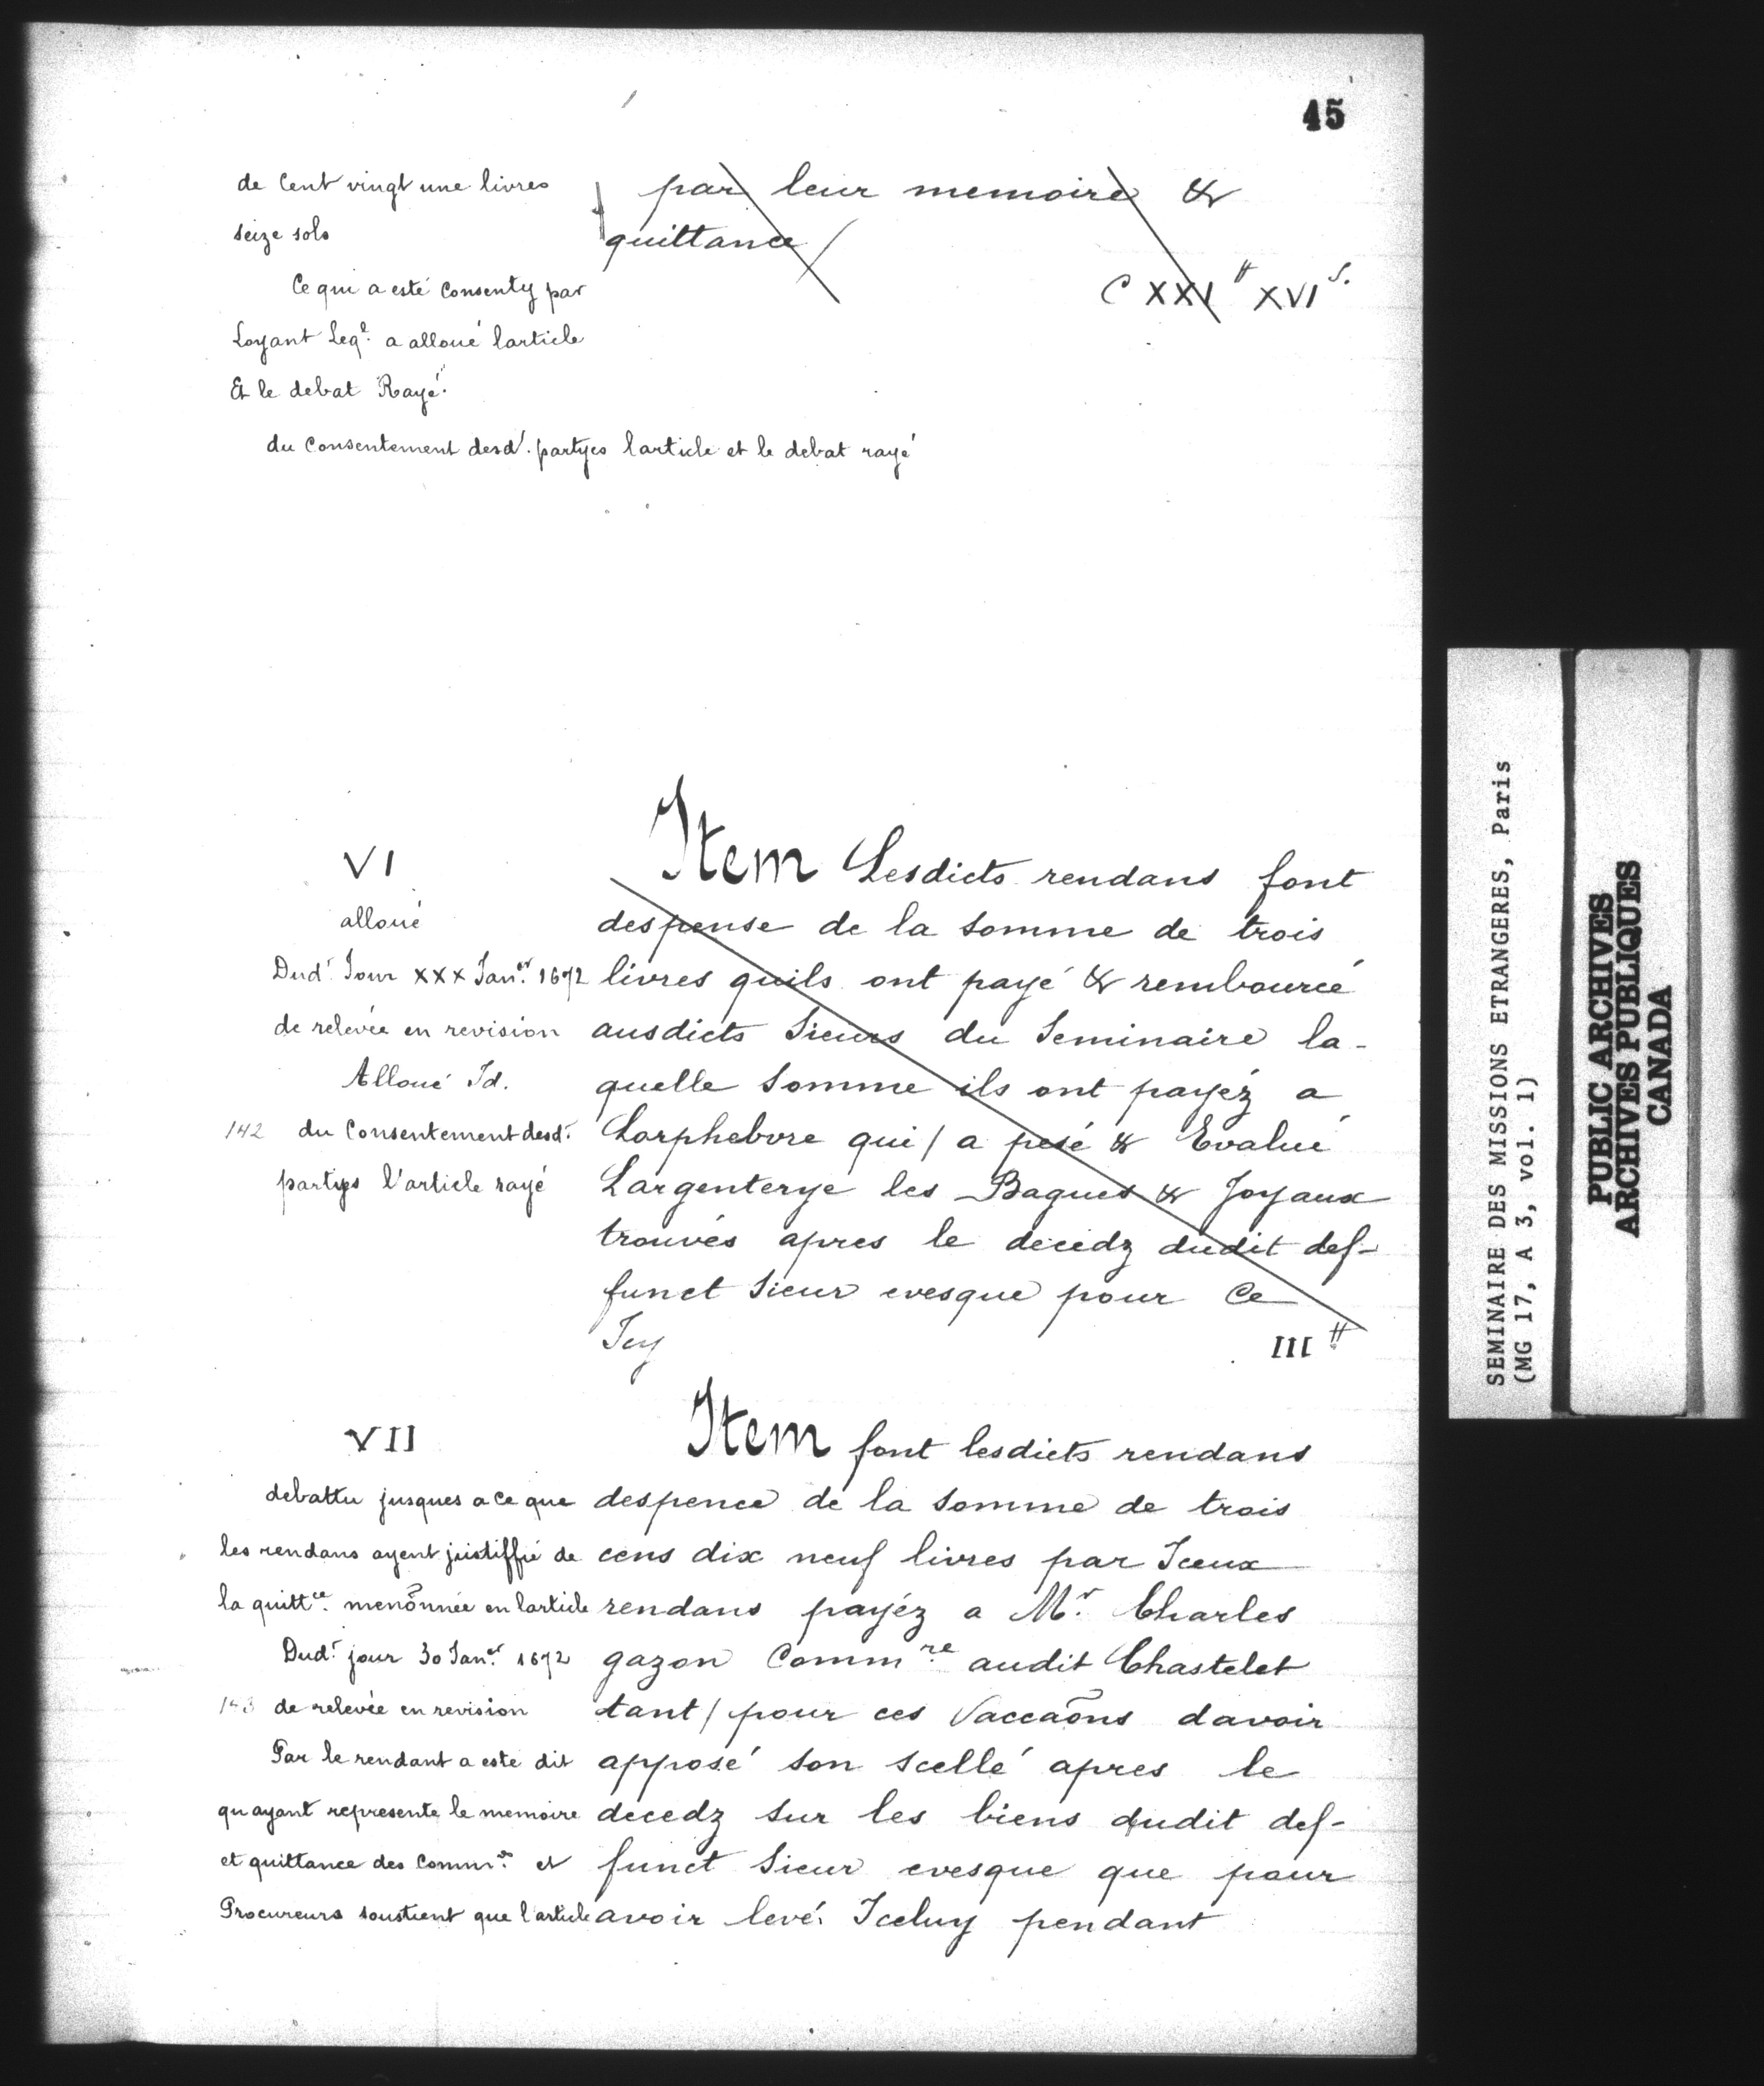 45
de Cent vingt une livres
seize sols
Ce qui a esté Consenty par
Loyant Leql. a alloué larticle
Et le debat Rayé.
du Consentement desd. partyes larticle et le debat rayé
par leur memoire &
quittance /
C XXI ᵗᵗ XVI s.
VI
alloué
Dud. Jour XXX Janer. 1672
de relevée en revision
Alloué Id.
142 du Consentement desd.
partyes l'article rayé
Item Lesdicts rendans font
despense de la somme de trois
livres quils ont payé & rembourcé
ausdicts Sieurs du Seminaire la-
quelle somme ils ont payéz a
Lorphebvre qui / a pesé & Evalué
Largenterye les Bagues & Joyaux
trouvés apres le decedz dudit def-
funct Sieur evesque pour Ce
Icy
III ᵗᵗ
VII
debattu jusques a ce que
les rendans ayent justiffié de
la quittce. menõnnée en larticle
Dud. jour 30 Janer. 1672
143 de relevée en revision
Par le rendant a esté dit
qu ayant representé le memoire
et quittance des Commres. et
Procureurs soustient que l'article
Item font lesdicts rendans
despence de la somme de trois
cens dix neuf livres par Iceux
rendans payéz a Mr. Charles
gazon Commre. audit Chastelet
tant / pour ces Vaccaõns davoir
apposé son scellé apres le
decedz sur les biens dudit def-
funct Sieur evesque que pour
avoir levé Iceluy pendant
SEMINAIRE DES MISSIONS ETRANGERES, Paris
(MG 17, A 3, vol. 1)
PUBLIC ARCHIVES
ARCHIVES PUBLIQUES
CANADA